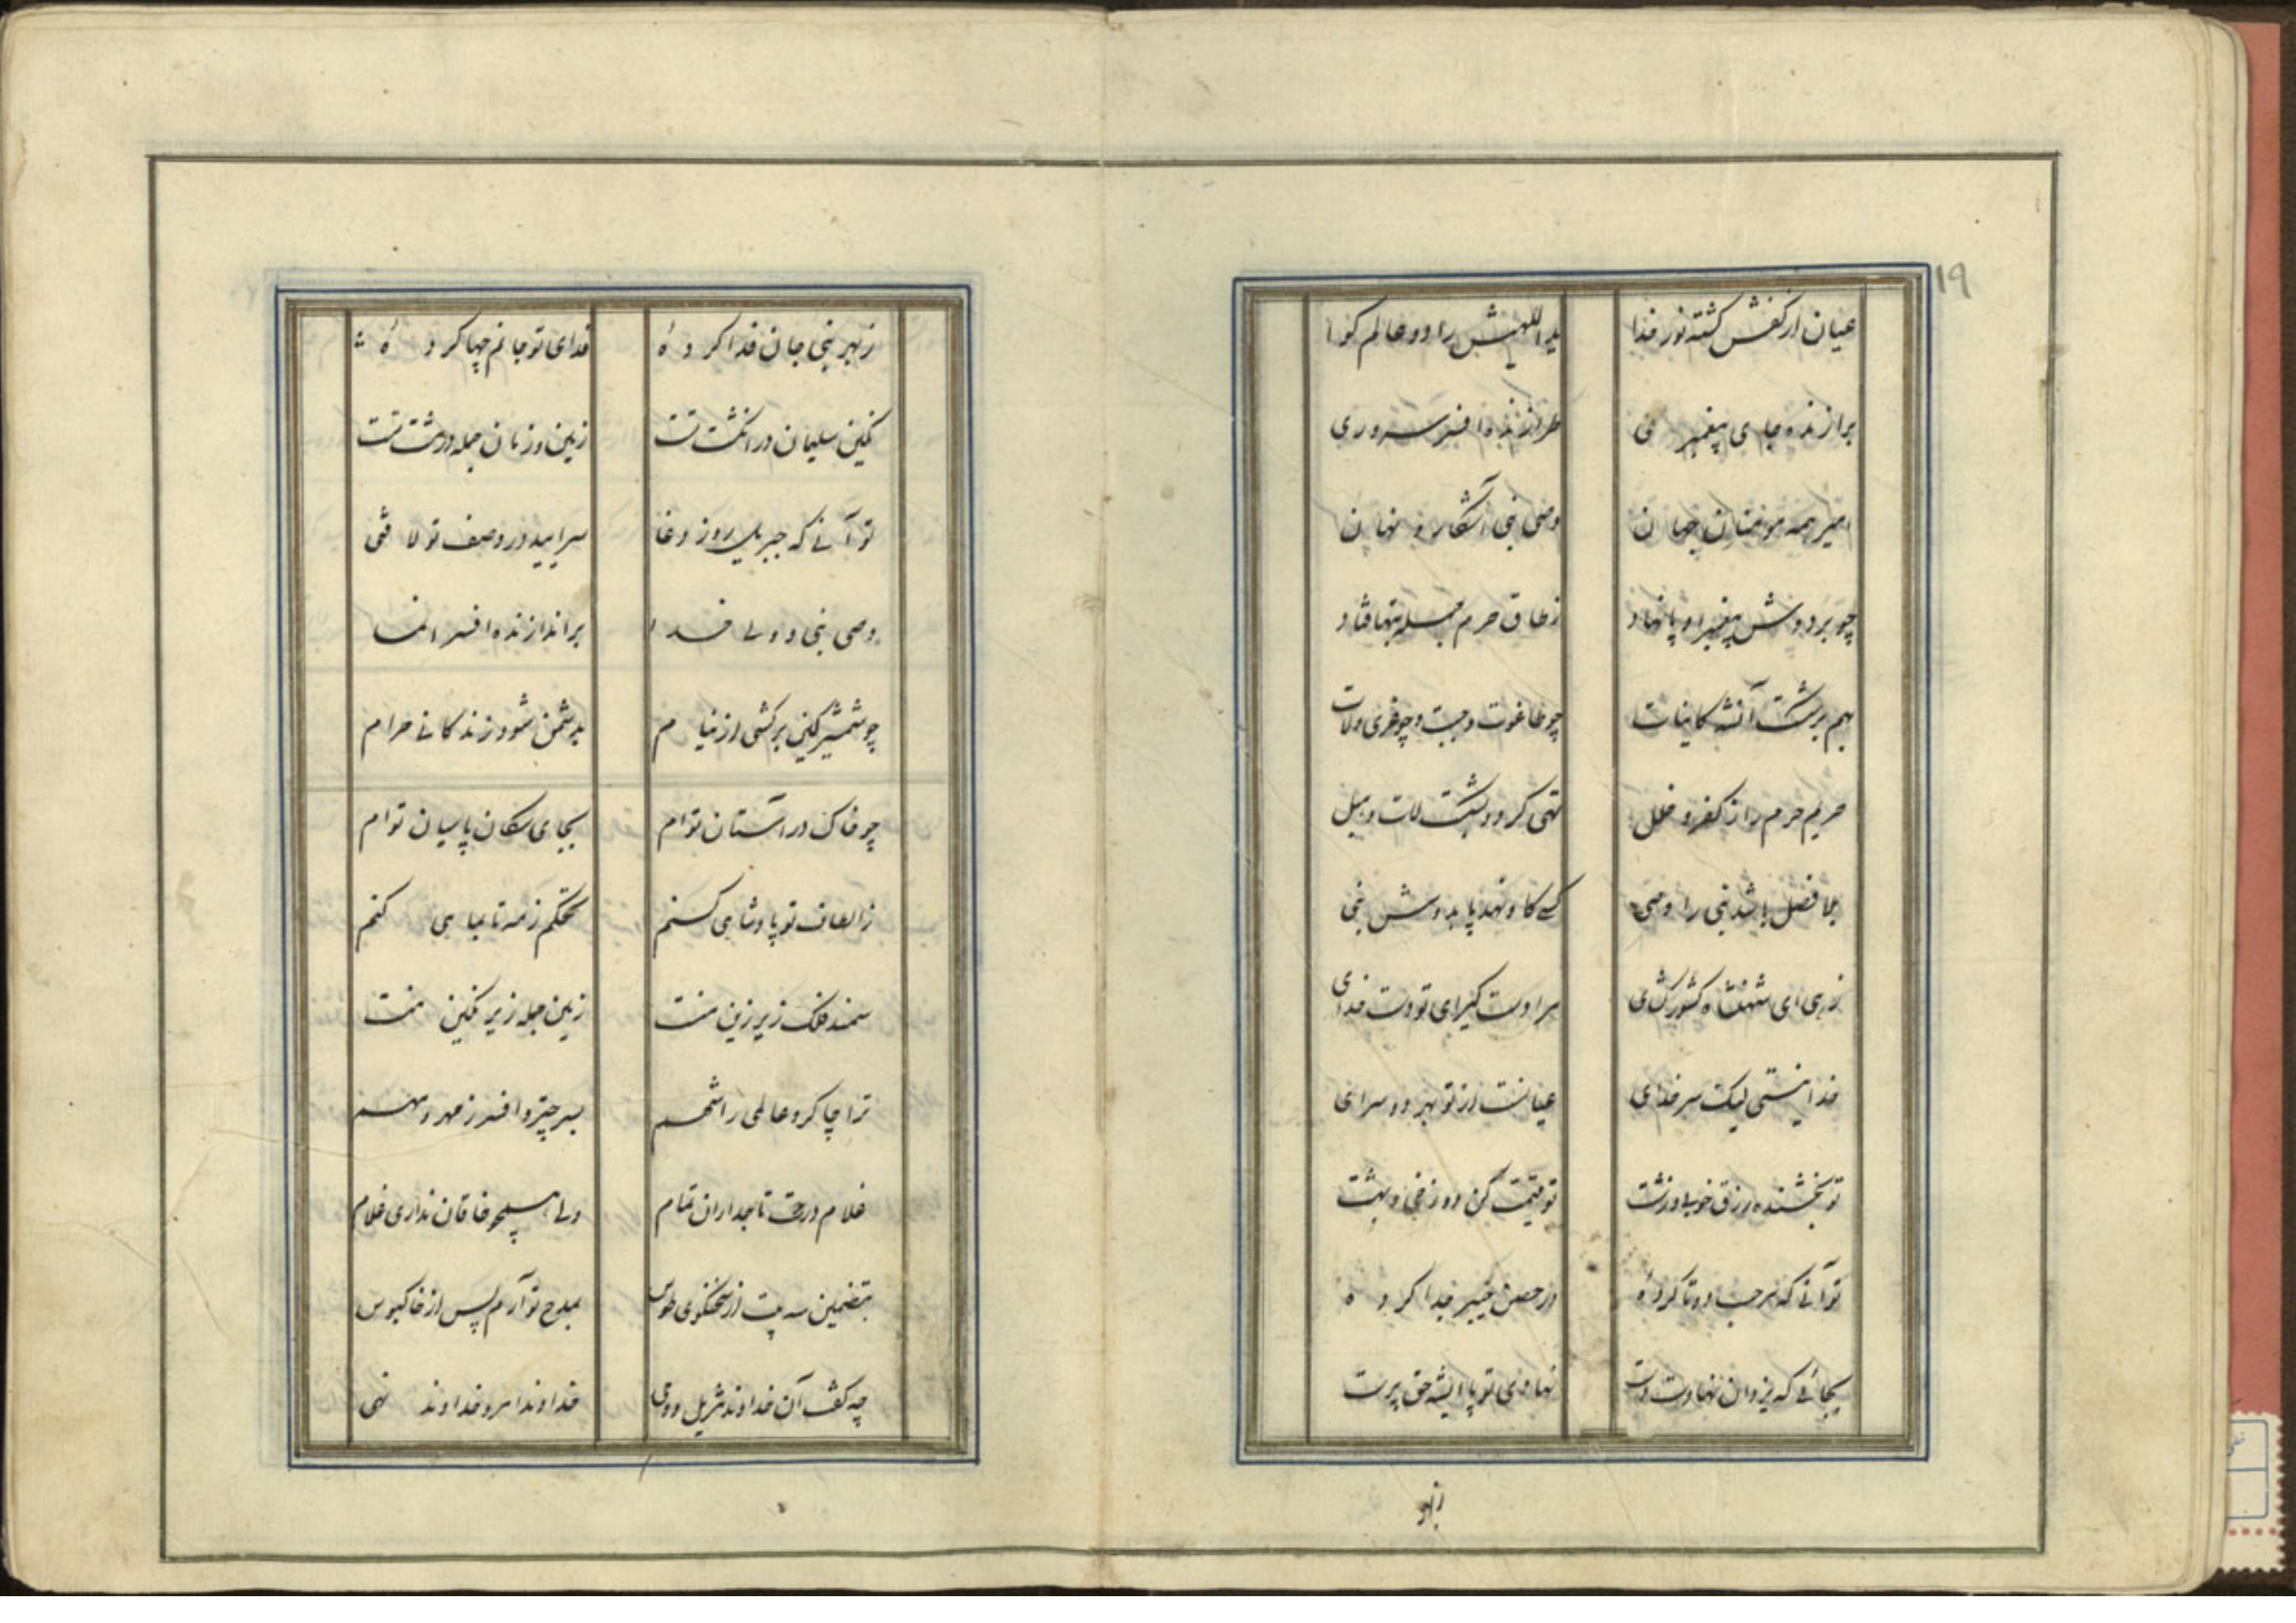 ۱۹
عیان از کفش گشته نور خدا یداللهیش را دو عالم گوا
برازنده جای پیغمبری طرازنده افسر سروری
امیر همه مومنان جهان وصی نبی آشکار و نهان
چو بر دوش پیغمبر او پا نهاد ز طاق حرم جمله بتها فتاد
بهم بر شکست آنشه کاینات چو طاغوت و جبت و چو عزی و لات
حریم حرم را ز کفر و خلل تهی کرد و بشکست لات و هبل
بلا فصل باشد نبی را وصی کسی کاو نهد پا بدوش نبی
زهی ای شهنشاه کشورگشای سزاوست گیرای تو دست خدای
خدا نیستی لیک سر خدای عیانست از تو بهر دو سرای
تو بخشنده رزق خوب و زشت تو قسمت کن دوزخی و بهشت
تو آنی که مرحب دو تا کرده در حصن خیبر جدا کرده
بجائی که یزدان نهادست دست نهادی تو پا ایشه حق پرست
ز بهر
ز بهر نبی جان فدا کرده فدای تو جانم چها کرده
نگین سلیمان در انگشت تست زمین و زمان جمله در مشت تست
تو آنی که جبریل روز وغا سراید در وصف تو لافتی
وصی نبی و ولی خدا برازنده افسر انما
چو شمشیر کین برکشی از نیام بدشمن شود زندگانی حرام
چو خاک در آستان توام بجای سگان پاسبان توام
ز الطاف تو پادشاهی کنم تحکم ز مه تا بماهی کنم
سمند فلک زیر زین منت زمین جمله زیر نگین منت
ترا چاکر و عالمی را شهم بسر چتر و افسر ز مهر و مهم
غلام درت تاجداران تمام ولی همچو خاقان نداری غلام
بتضمین سه بیت از سخنگوی طوس بمدح تو آرم پس از خاکبوس
چه گفت آن خداوند تنزیل و وحی خداوند امر و خداوند نهی